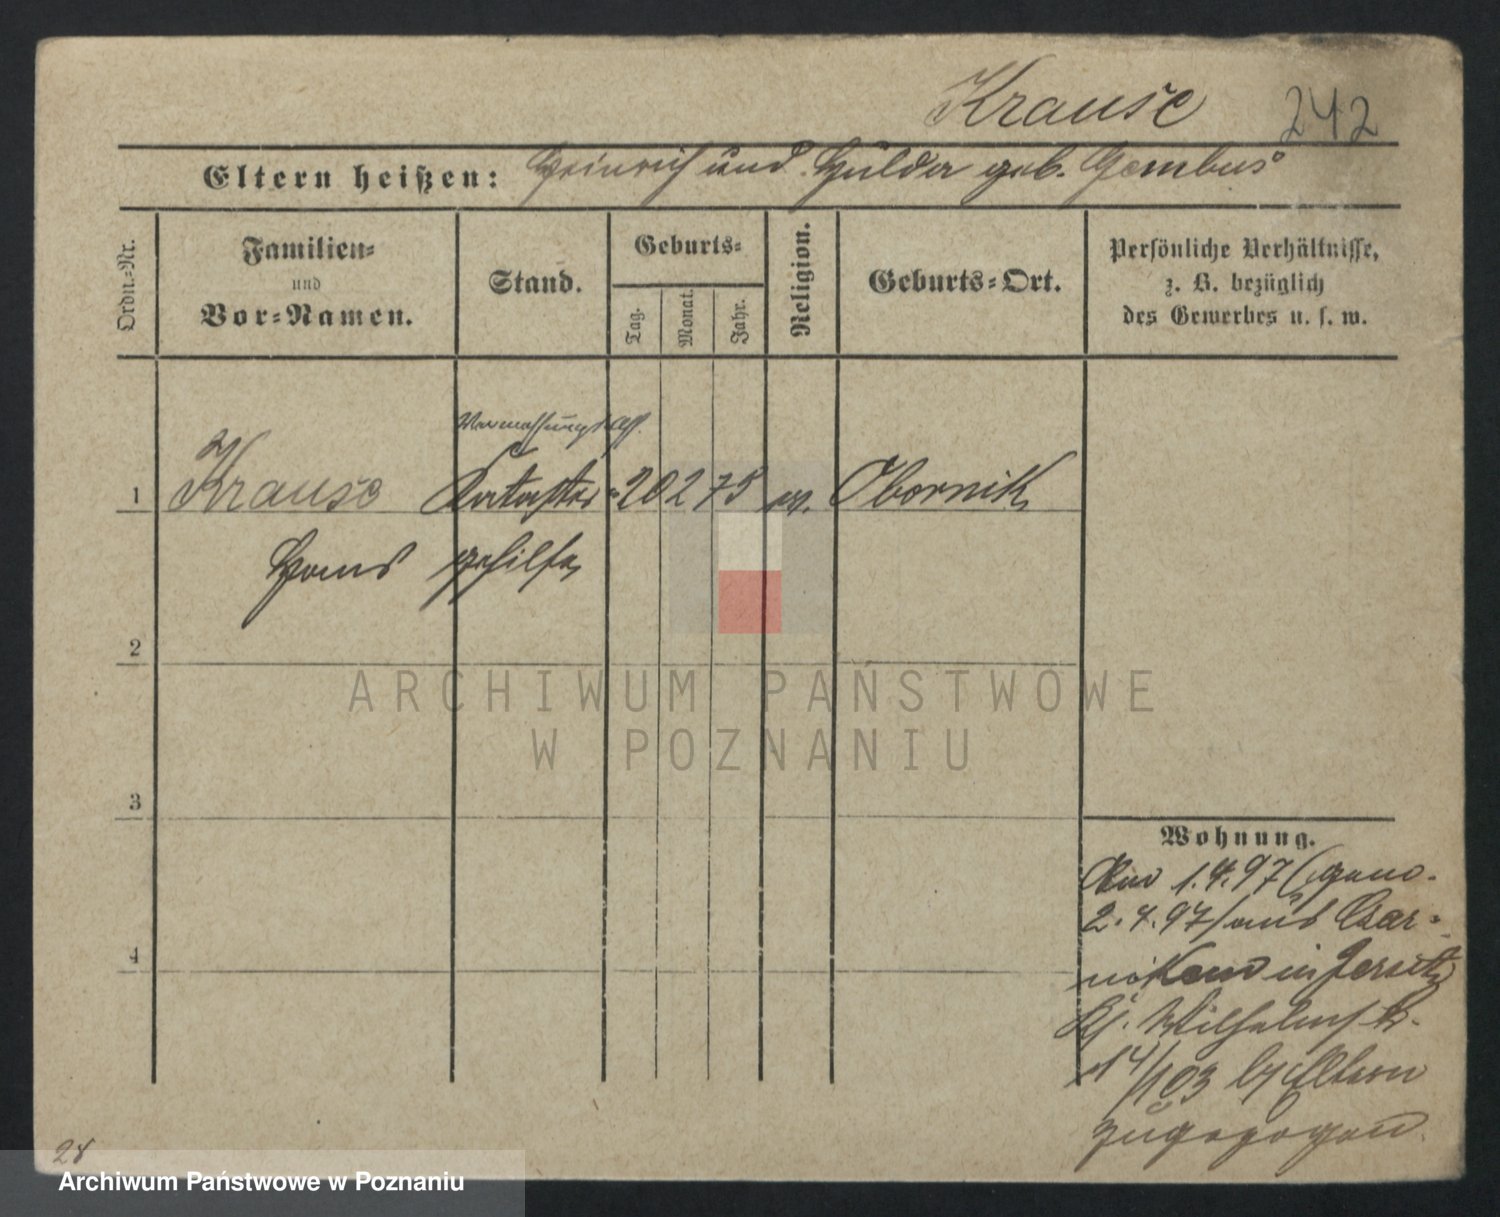 Krause 242
Eltern heißen: Heinrich und Hulda geb. Gembus
Ordn.-Nr.
Familien-
und
Vor-Namen.
Stand.
Geburts-
Tag.
Monat.
Jahr.
Religion.
Geburts-Ort.
Persönliche Verhältnisse,
z. B. bezüglich
des Gewerbes u. s. w.
Vermessungs
1 Krause Kataster- 20 2 75 ev. Obornik
Hans gehilfe
2
ARCHIWUM PAŃSTWOWE
W POZNANIU
3
Wohnung.
1.4.97 (gem.
2.4.97) aus Czar-
nikau in Jersitz
Wilhelmstr.
14/103 Eltern
zugezogen.
4
28
Archiwum Państwowe w Poznaniu